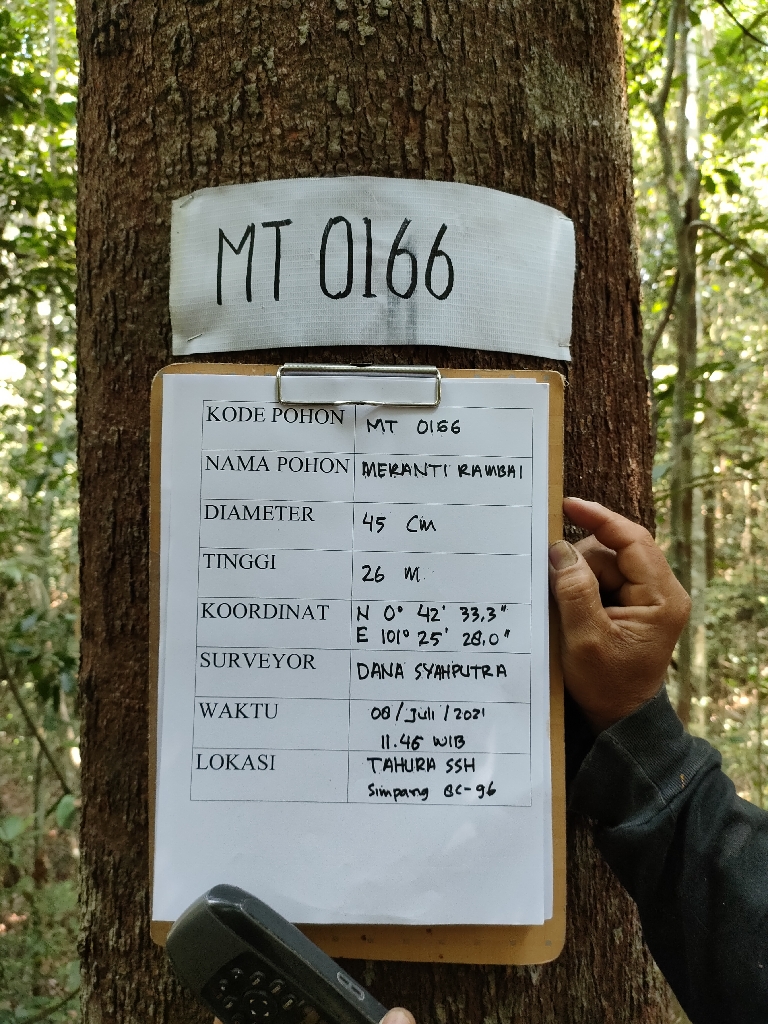 MT 0166
KODE POHON MT 0166
NAMA POHON MERANTI RAMBAI
DIAMETER 45 Cm
TINGGI 26 M.
KOORDINAT N 0° 42' 33,3"
E 101° 25' 28,0"
SURVEYOR DANA SYAHPUTRA
WAKTU 08/Juli/2021
11.46 WIB
LOKASI TAHURA SSH
Simpang BC-96